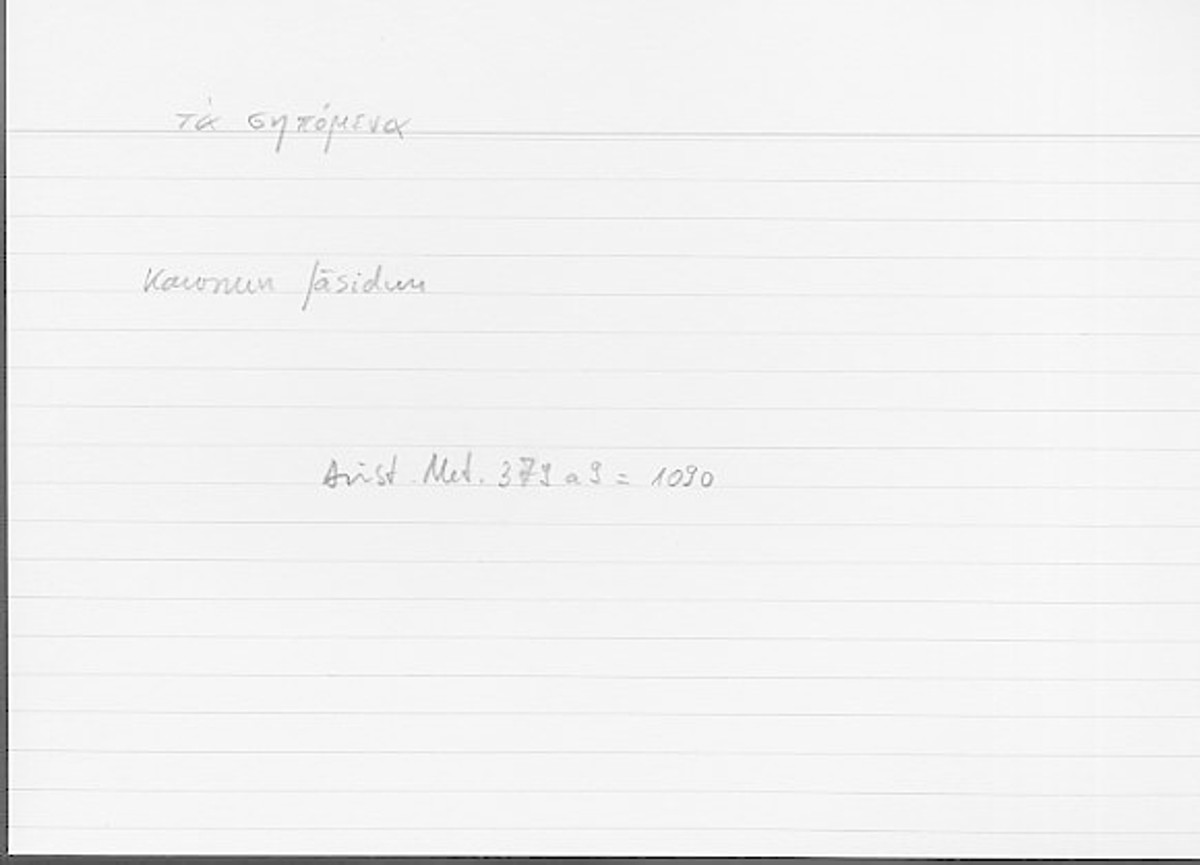 τὰ σηπόμενα
Kawnun fāsidun
Arist. Met. 379 a 9 = 1090